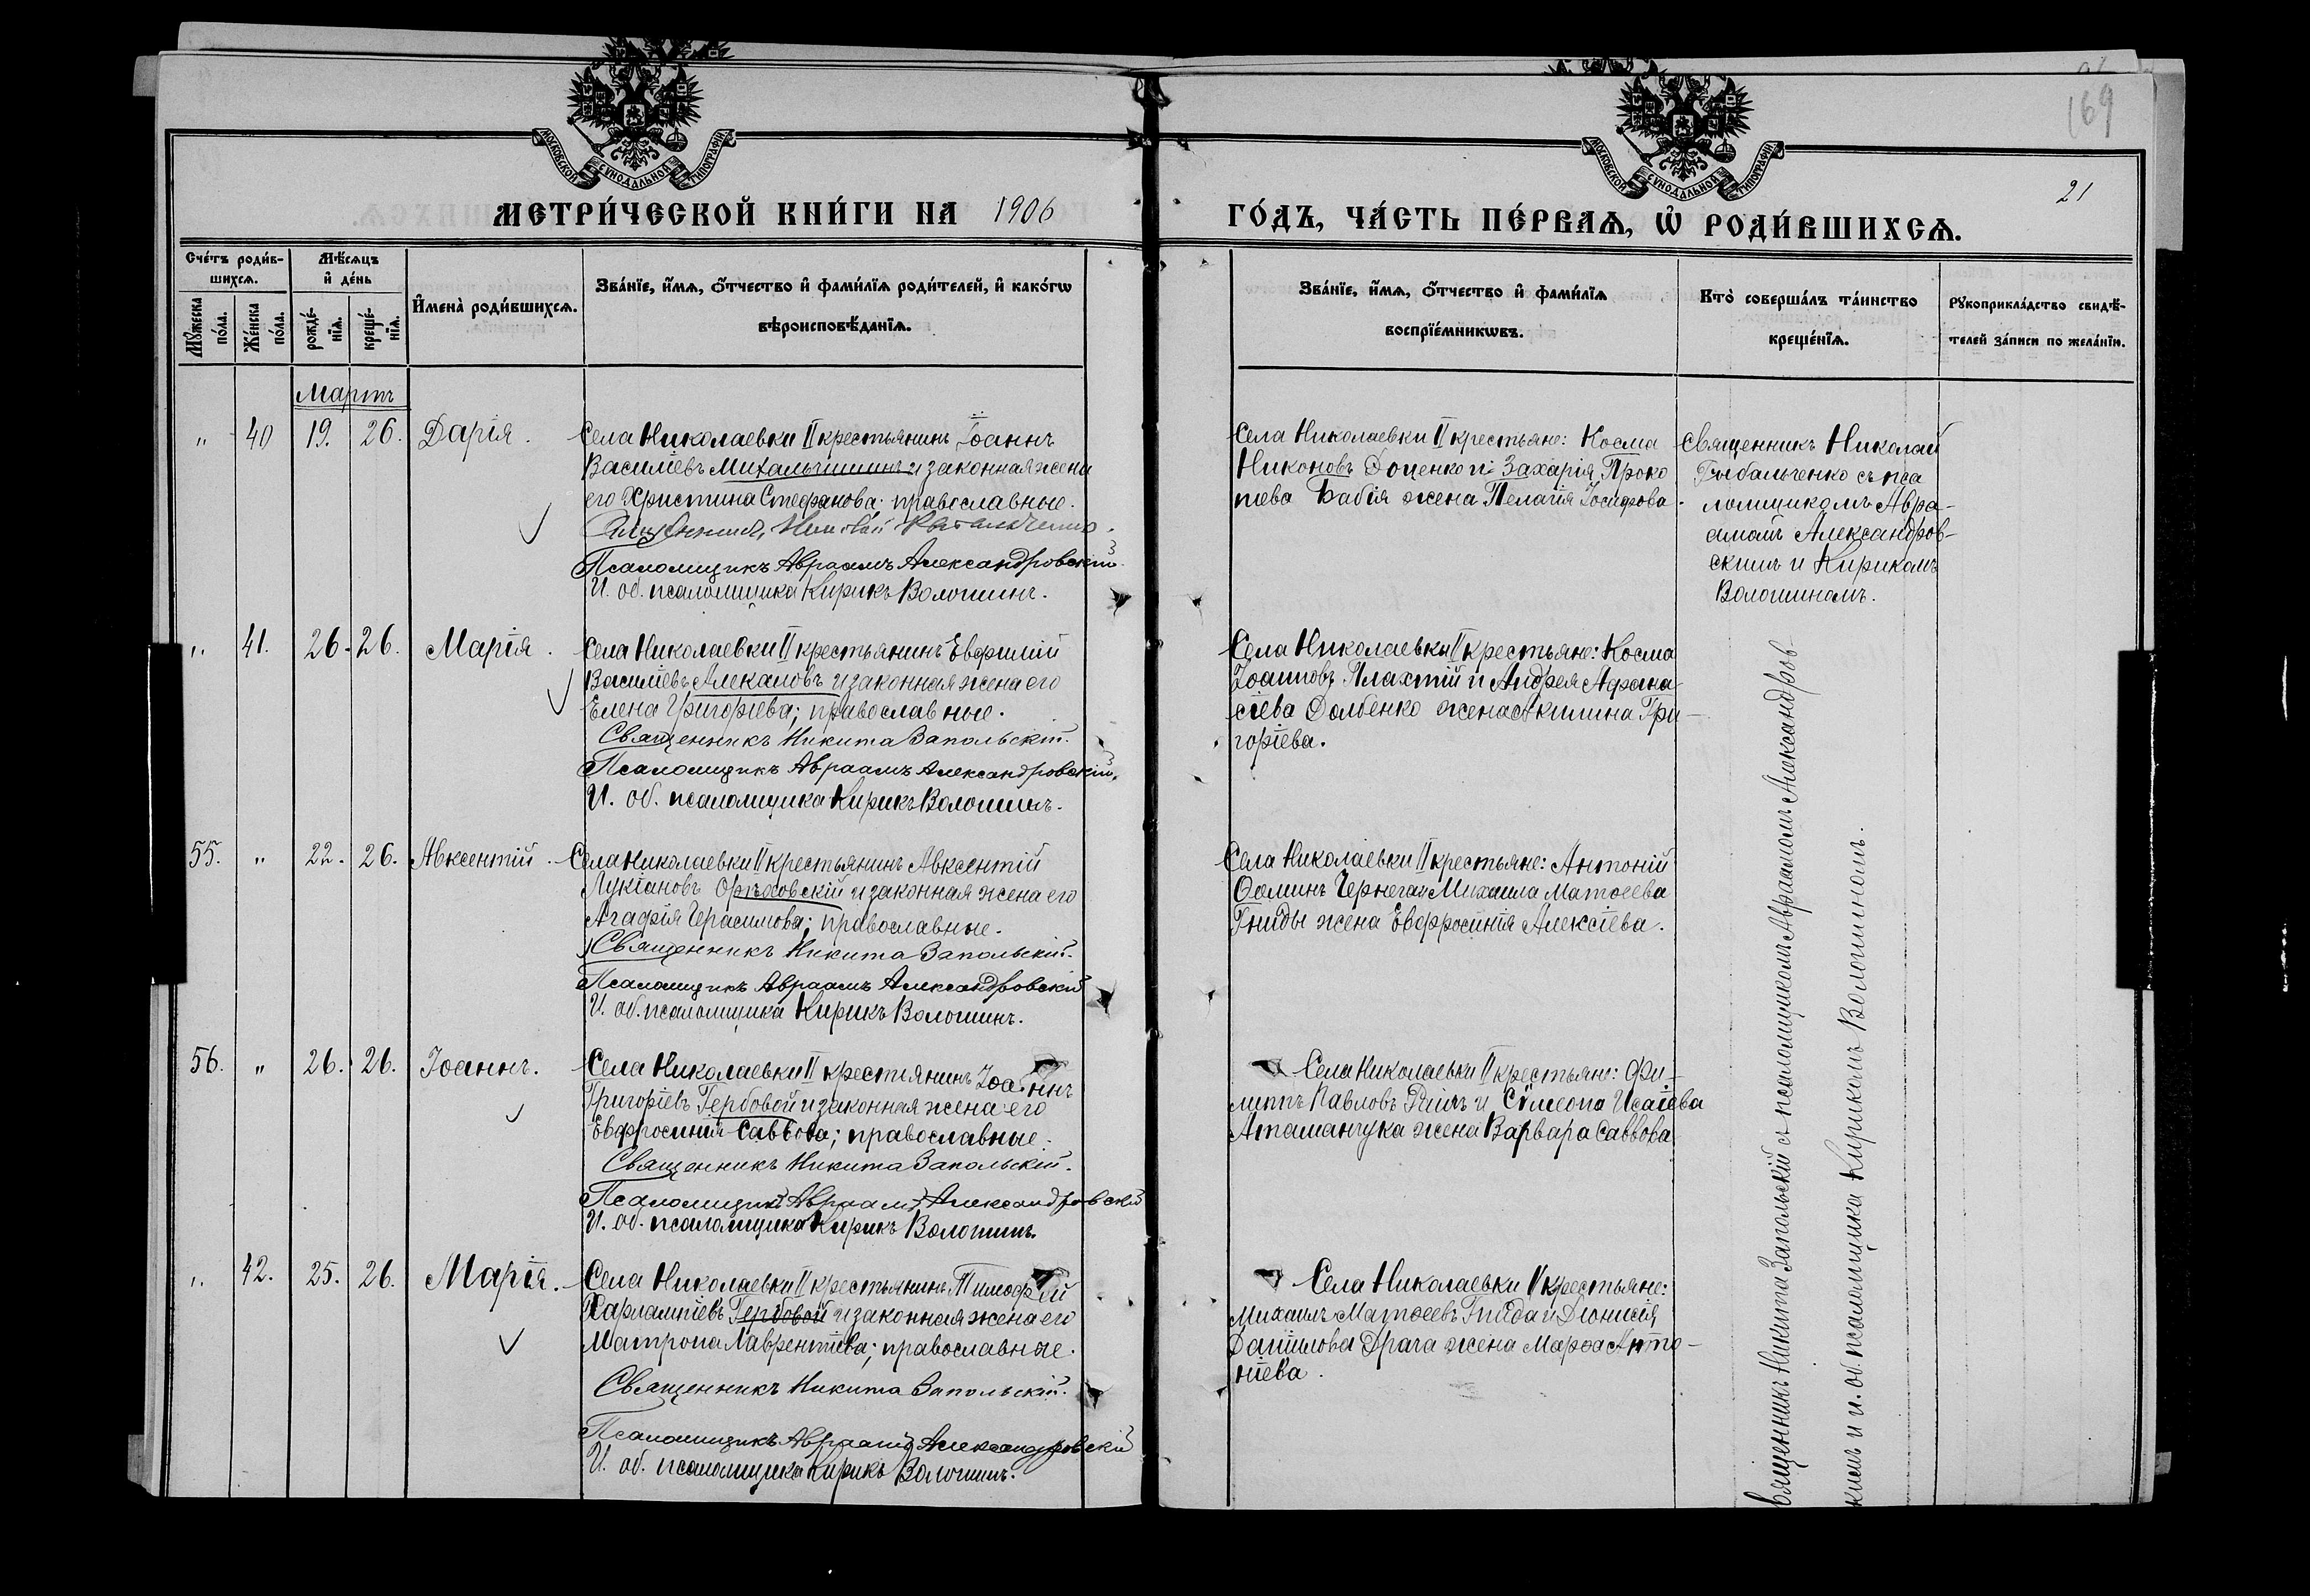 169
21
МОСКОВСКОЙ СѴНОДАЛЬНОЙ ТИПОГРАФІИ
МОСКОВСКОЙ СѴНОДАЛЬНОЙ ТИПОГРАФІИ
МЕТРИ́ЧЕСКОЙ КНИ́ГИ НА 1906
ГО́ДЪ, ЧА́СТЬ ПЕ́РВАѦ, Ѡ҆ РОДИ́ВШИХСѦ.
Сче́тъ роди́в-
шихсѧ.
Мꙋ́жеска по́ла.
Же́нска по́ла.
Мѣ́сѧцъ
и҆ де́нь
рожде́-
нїѧ.
креще́-
нїѧ.
И҆мена̀ роди́вшихсѧ.
Зва́нїе, и҆́мѧ, ѻ҆́тчество и҆ фами́лїѧ роди́телей, и҆ како́гѡ
вѣроисповѣ́данїѧ.
Зва́нїе, и҆́мѧ, ѻ҆́тчество и҆ фами́лїѧ
воспрїе́мникѡвъ.
Кто̀ соверша́лъ та́инство
креще́нїѧ.
Рꙋкоприкла́дство свидѣ́-
телей за́писи по жела́нїю.
Мартъ
" 40 19. 26. Дарія.
Села Николаевки II крестьянинъ Іоаннъ
Василіевъ и законная жена
его Христина Стефанова; православные.
Псаломщикъ Авраамъ Александровскій
И. об. псаломщика Кирикъ Волошинъ.
Села Николаевки II крестьяне: Косма
Никоновъ Доценко и Захарія Проко
піева Бабія жена Пелагія Іосифова.
Священникъ Николай
Рыбальченко съ пса
ломщикомъ Авра-
амомъ Александров-
скимъ и Кирикомъ
Волошиномъ.
" 41. 26. 26. Марія.
Села Николаевки II крестьянинъ Евфимій
Василіевъ Алекаловъ и законная жена его
Елена Григоріева; православные.
Священникъ Никита Запольскій.
Псаломщикъ Авраамъ Александровскій.
И. об. псаломщика Кирикъ Волошинъ.
Села Николаевки II крестьяне: Косма
Іоанновъ Плахтій и Андрея Афана
сіева Долбенко жена Акилина Гри-
горіева.
55. " 22. 26. Авксентій.
Села Николаевки II крестьянинъ Авксентій
Лукіановъ Орѣховскій и законная жена его
Агафія Герасимова; православные.
Священникъ Никита Запольскій.
Псаломщикъ Авраамъ Александровскій
И. об. псаломщика Кирикъ Волошинъ.
Села Николаевки II крестьяне: Антоній
Ѳоминъ Чернега и Михаила Матѳеева
Гниды жена Евфросинія Алексіева.
56. " 26. 26. Іоаннъ.
Села Николаевки II крестьянинъ Іоаннъ
Григоріевъ Гербовой и законная жена его
Евфросинія Саввова; православные.
Священникъ Никита Запольскій.
Псаломщикъ Авраамъ Александровскій
И. об. псаломщика Кирикъ Волошинъ.
Села Николаевки II крестьяне: Фи-
липпъ Павловъ и Сѵмеона Исаіева
Атаманчука жена Варвара Саввова
" 42. 25. 26. Марія.
Села Николаевки II крестьянинъ Тимофей
Харлампіевъ Гербовой и законная жена его
Матрона Лаврентіева; православные.
Священникъ Никита Запольскій.
Псаломщикъ Авраамъ Александровскій
И. об. псаломщика Кирикъ Волошинъ.
Села Николаевки II крестьяне:
Михаилъ Матѳеевъ Гнида и Діонисія
Даніилова Драча жена Марѳа Анто-
ніева.
Священникъ Никита Запольскій съ псаломщикомъ Авраамомъ Александров-
скимъ и и. об. псаломщика Кирикомъ Волошиномъ.